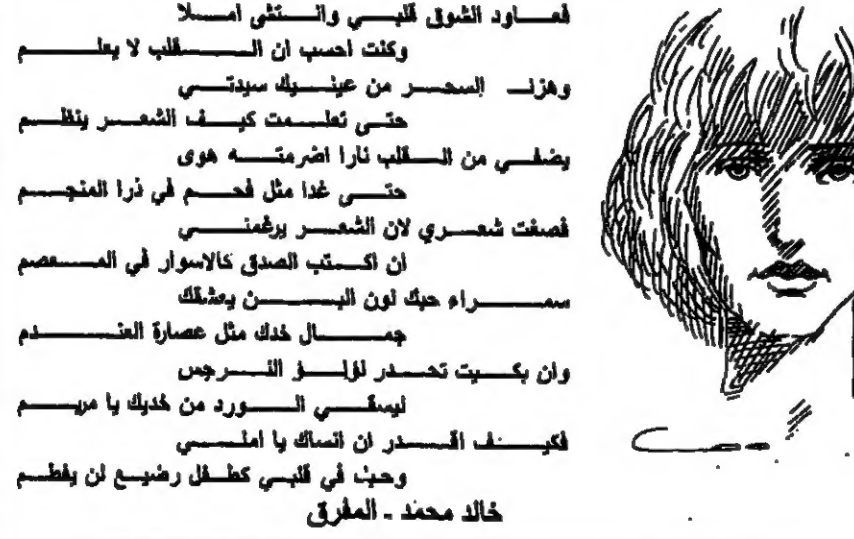 فعاود الشوق قلبي وانتشى املا
وكنت احسب ان القلب لا يعلم
وهزني السحر من عينيك سيدتي
حتى تعلمت كيف الشعر ينظم
يضفي من القلب نارا اضرمته هوى
حتى غدا مثل فحم في ذرا المنجم
فصغت شعري لان الشعر يرغمني
ان اكتب الصدق كالاسوار في المعصم
سمراء حبك لون البن يعشقك
جمال خدك مثل عصارة العندم
وان بكيت تحدر لؤلؤ النرجس
ليسقي الورد من خديك يا مريم
فكيف اقدر ان انساك يا املي
وحبك في قلبي كطفل رضيع لن يفطم
خالد محمد - المفرق